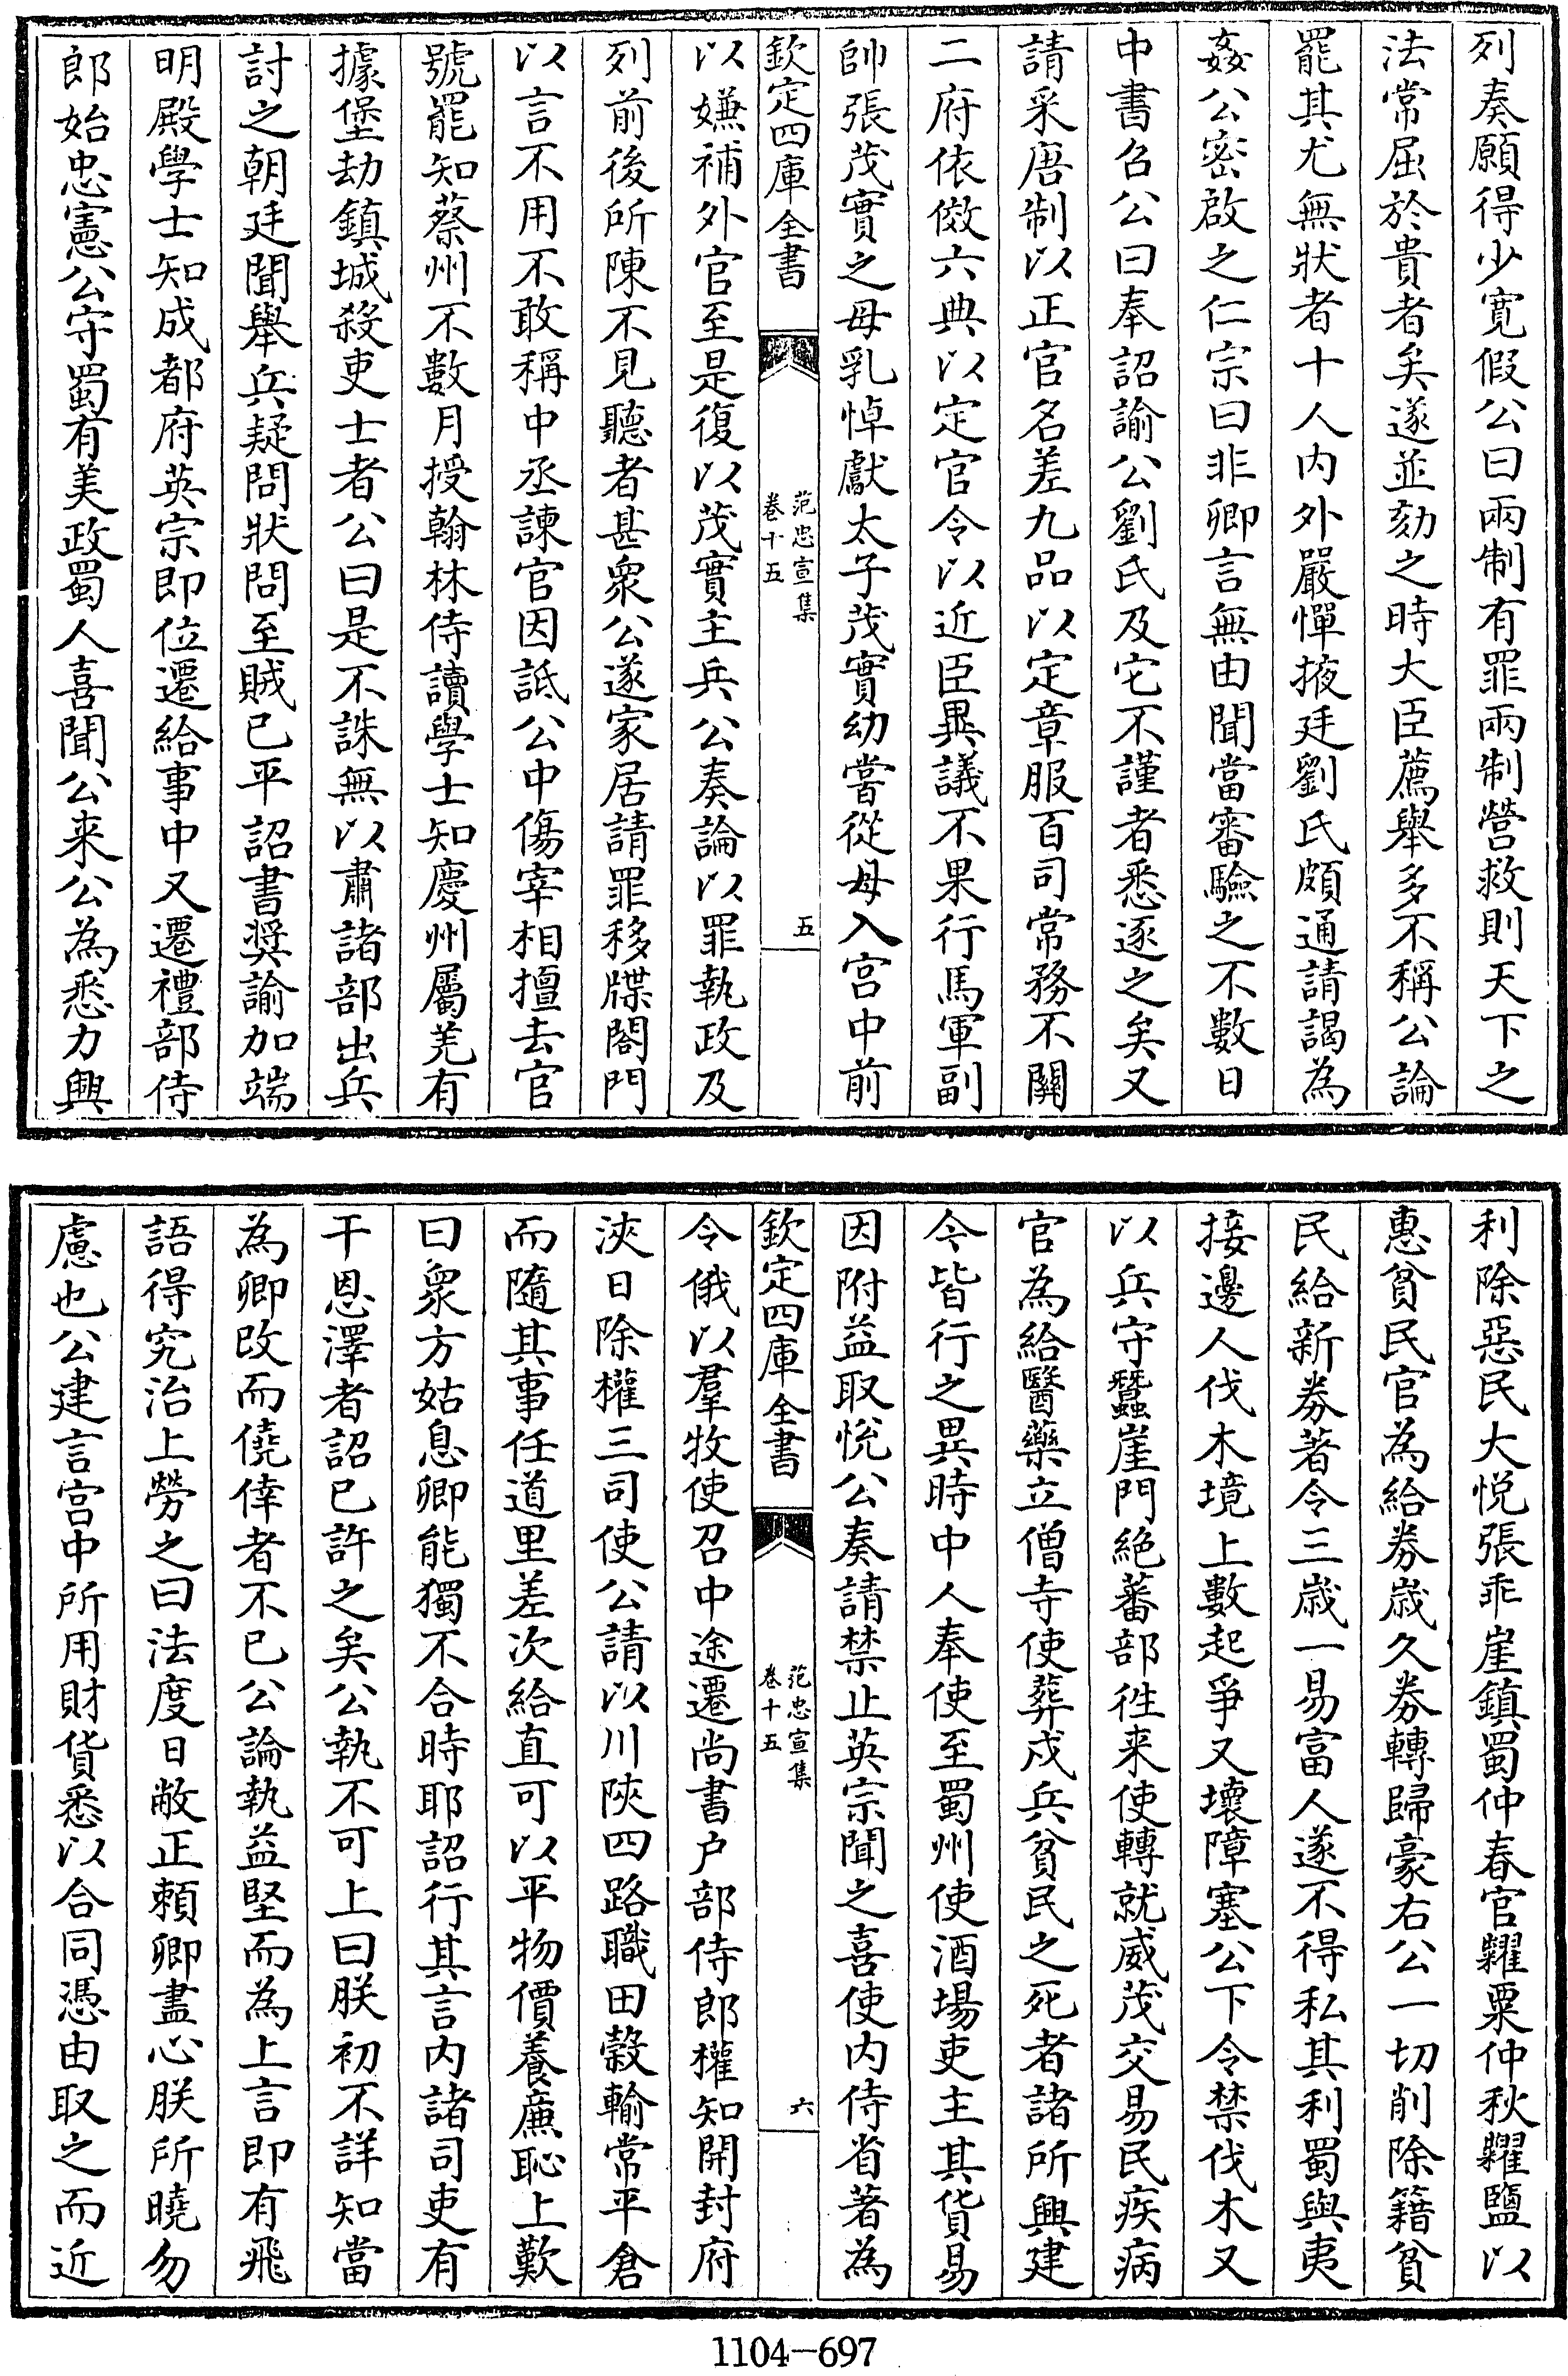 列奏願得少寛假公曰兩制有罪兩制營救則天下之
法常屈於貴者矣遂並劾之時大臣薦舉多不稱公論
罷其尤無狀者十人内外嚴憚掖廷劉氏頗通請謁為
姦公密啟之仁宗曰非卿言無由聞當審驗之不數日
中書召公曰奉詔諭公劉氏及宅不謹者悉逐之矣又
請采唐制以正官名差九品以定章服百司常務不關
二府依倣六典以定官令以近臣異議不果行馬軍副
帥張茂實之母乳悼獻太子茂實幼嘗從母入宫中前
欽定四庫全書
范忠宣集
卷十五
五
以嫌補外官至是復以茂實主兵公奏論以罪執政及
列前後所陳不見聽者甚衆公遂家居請罪移牒閤門
以言不用不敢稱中丞諫官因詆公中傷宰相擅去官
號罷知蔡州不數月授翰林侍讀學士知慶州屬羌有
據堡劫鎮城殺吏士者公曰是不誅無以肅諸部出兵
討之朝廷聞舉兵疑問狀問至賊已平詔書奨諭加端
明殿學士知成都府英宗即位遷給事中又遷禮部侍
郎始忠憲公守蜀有美政蜀人喜聞公来公為悉力興
利除惡民大悦張乖崖鎮蜀仲春官糶粟仲秋糶鹽以
惠貧民官為給券嵗久券轉歸豪右公一切削除籍貧
民給新券著令三嵗一易富人遂不得私其利蜀與夷
接邊人伐木境上數起爭又壞障塞公下令禁伐木又
以兵守蠶崖門絶蕃部徃来使轉就威茂交易民疾病
官為給醫藥立僧寺使葬戍兵貧民之死者諸所興建
今皆行之異時中人奉使至蜀州使酒場吏主其貨易
因附益取悅公奏請禁止英宗聞之喜使内侍省著為
欽定四庫全書
范忠宣集
卷十五
六
令俄以羣牧使召中途遷尚書户部侍郎權知開封府
浹日除權三司使公請以川陜四路職田榖輸常平倉
而隨其事任道里差次給直可以平物價養廉恥上歎
曰衆方姑息卿能獨不合時耶詔行其言内諸司吏有
干恩澤者詔已許之矣公執不可上曰朕初不詳知當
為卿改而僥倖者不已公論執益堅而為上言即有飛
語得究治上勞之曰法度日敝正頼卿盡心朕所曉勿
慮也公建言宫中所用財貨悉以合同憑由取之而近
1104-697